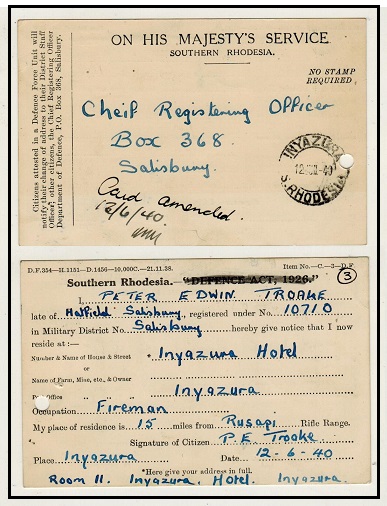 ON HIS MAJESTY'S SERVICE
SOUTHERN RHODESIA.
NO STAMP
REQUIRED
Citizens attested in a Defence Force Unit will
notify their change of address to their District Staff
Officer; other citizens, the Chief Registering Officer
Department of Defence, P.O. Box 368, Salisbury.
Cheif Registering Officer
Box 368
Salisbury.
INYAZURA
40
S. RHODESIA
Card amended.
12/6/40
D.F.354—H.1151—D.1456—10,000C.—21.11.38.
Item No.—C.—3—D.F.
Southern Rhodesia. "DEFENCE ACT, 1926."
3
I, PETER EDWIN TROAKE
late of Hatfield Salisbury, registered under No. 10710
in Military District No. Salisbury hereby give notice that I now
reside at :—
Number & Name of House & Street * Inyazura Hotel
or
Name of Farm, Mine, etc., & Owner
Post Office Inyazura
Occupation Fireman
My place of residence is 15 miles from Rusapi Rifle Range.
Signature of Citizen P. E. Troake.
Place Inyazura Date 12-6-40
*Here give your address in full.
Room 11. Inyazura. Hotel. Inyazura.